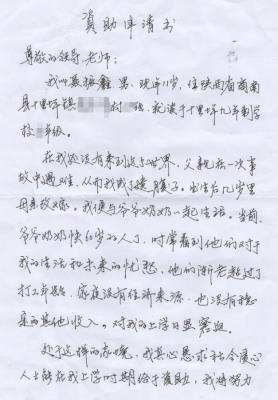 资助申请书
尊敬的领导、老师：
我叫聂振鑫，男，现年11岁，住陕西省商南
县十里坪镇 村 组，就读于十里坪九年制学
校 年级。
在我还没有来到这个世界，父亲在一次事
故中遇难，从而我成了遗腹子。出生后几岁里
母亲改嫁。我便与爷爷奶奶一起生活。当前，
爷爷奶奶快60岁的人了，时常看到他们对于
我的生活和未来的忧愁，他们渐老超过了
打工年龄，家庭没有经济来源，也没有稳
定的其他收入。对我的上学日显窘迫。
处于这样的家境，我真心恳求社会爱心
人士能在我上学时期给于资助，我将努力